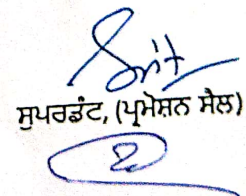 ਸੁਪਰਡੰਟ, (ਪ੍ਰਮੋਸ਼ਨ ਸੈਲ)
2